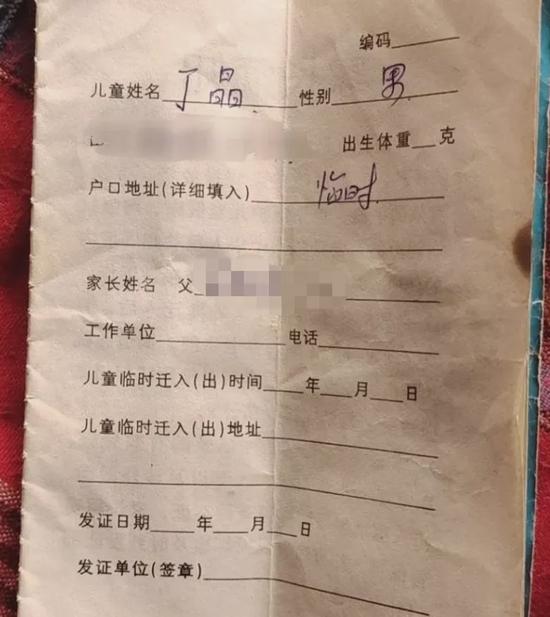 编码
儿童姓名 丁晶 性别 男
出生体重 克
户口地址(详细填入) 临时
家长姓名 父
工作单位 电话
儿童临时迁入(出)时间 年 月 日
儿童临时迁入(出)地址
发证日期 年 月 日
发证单位(签章)